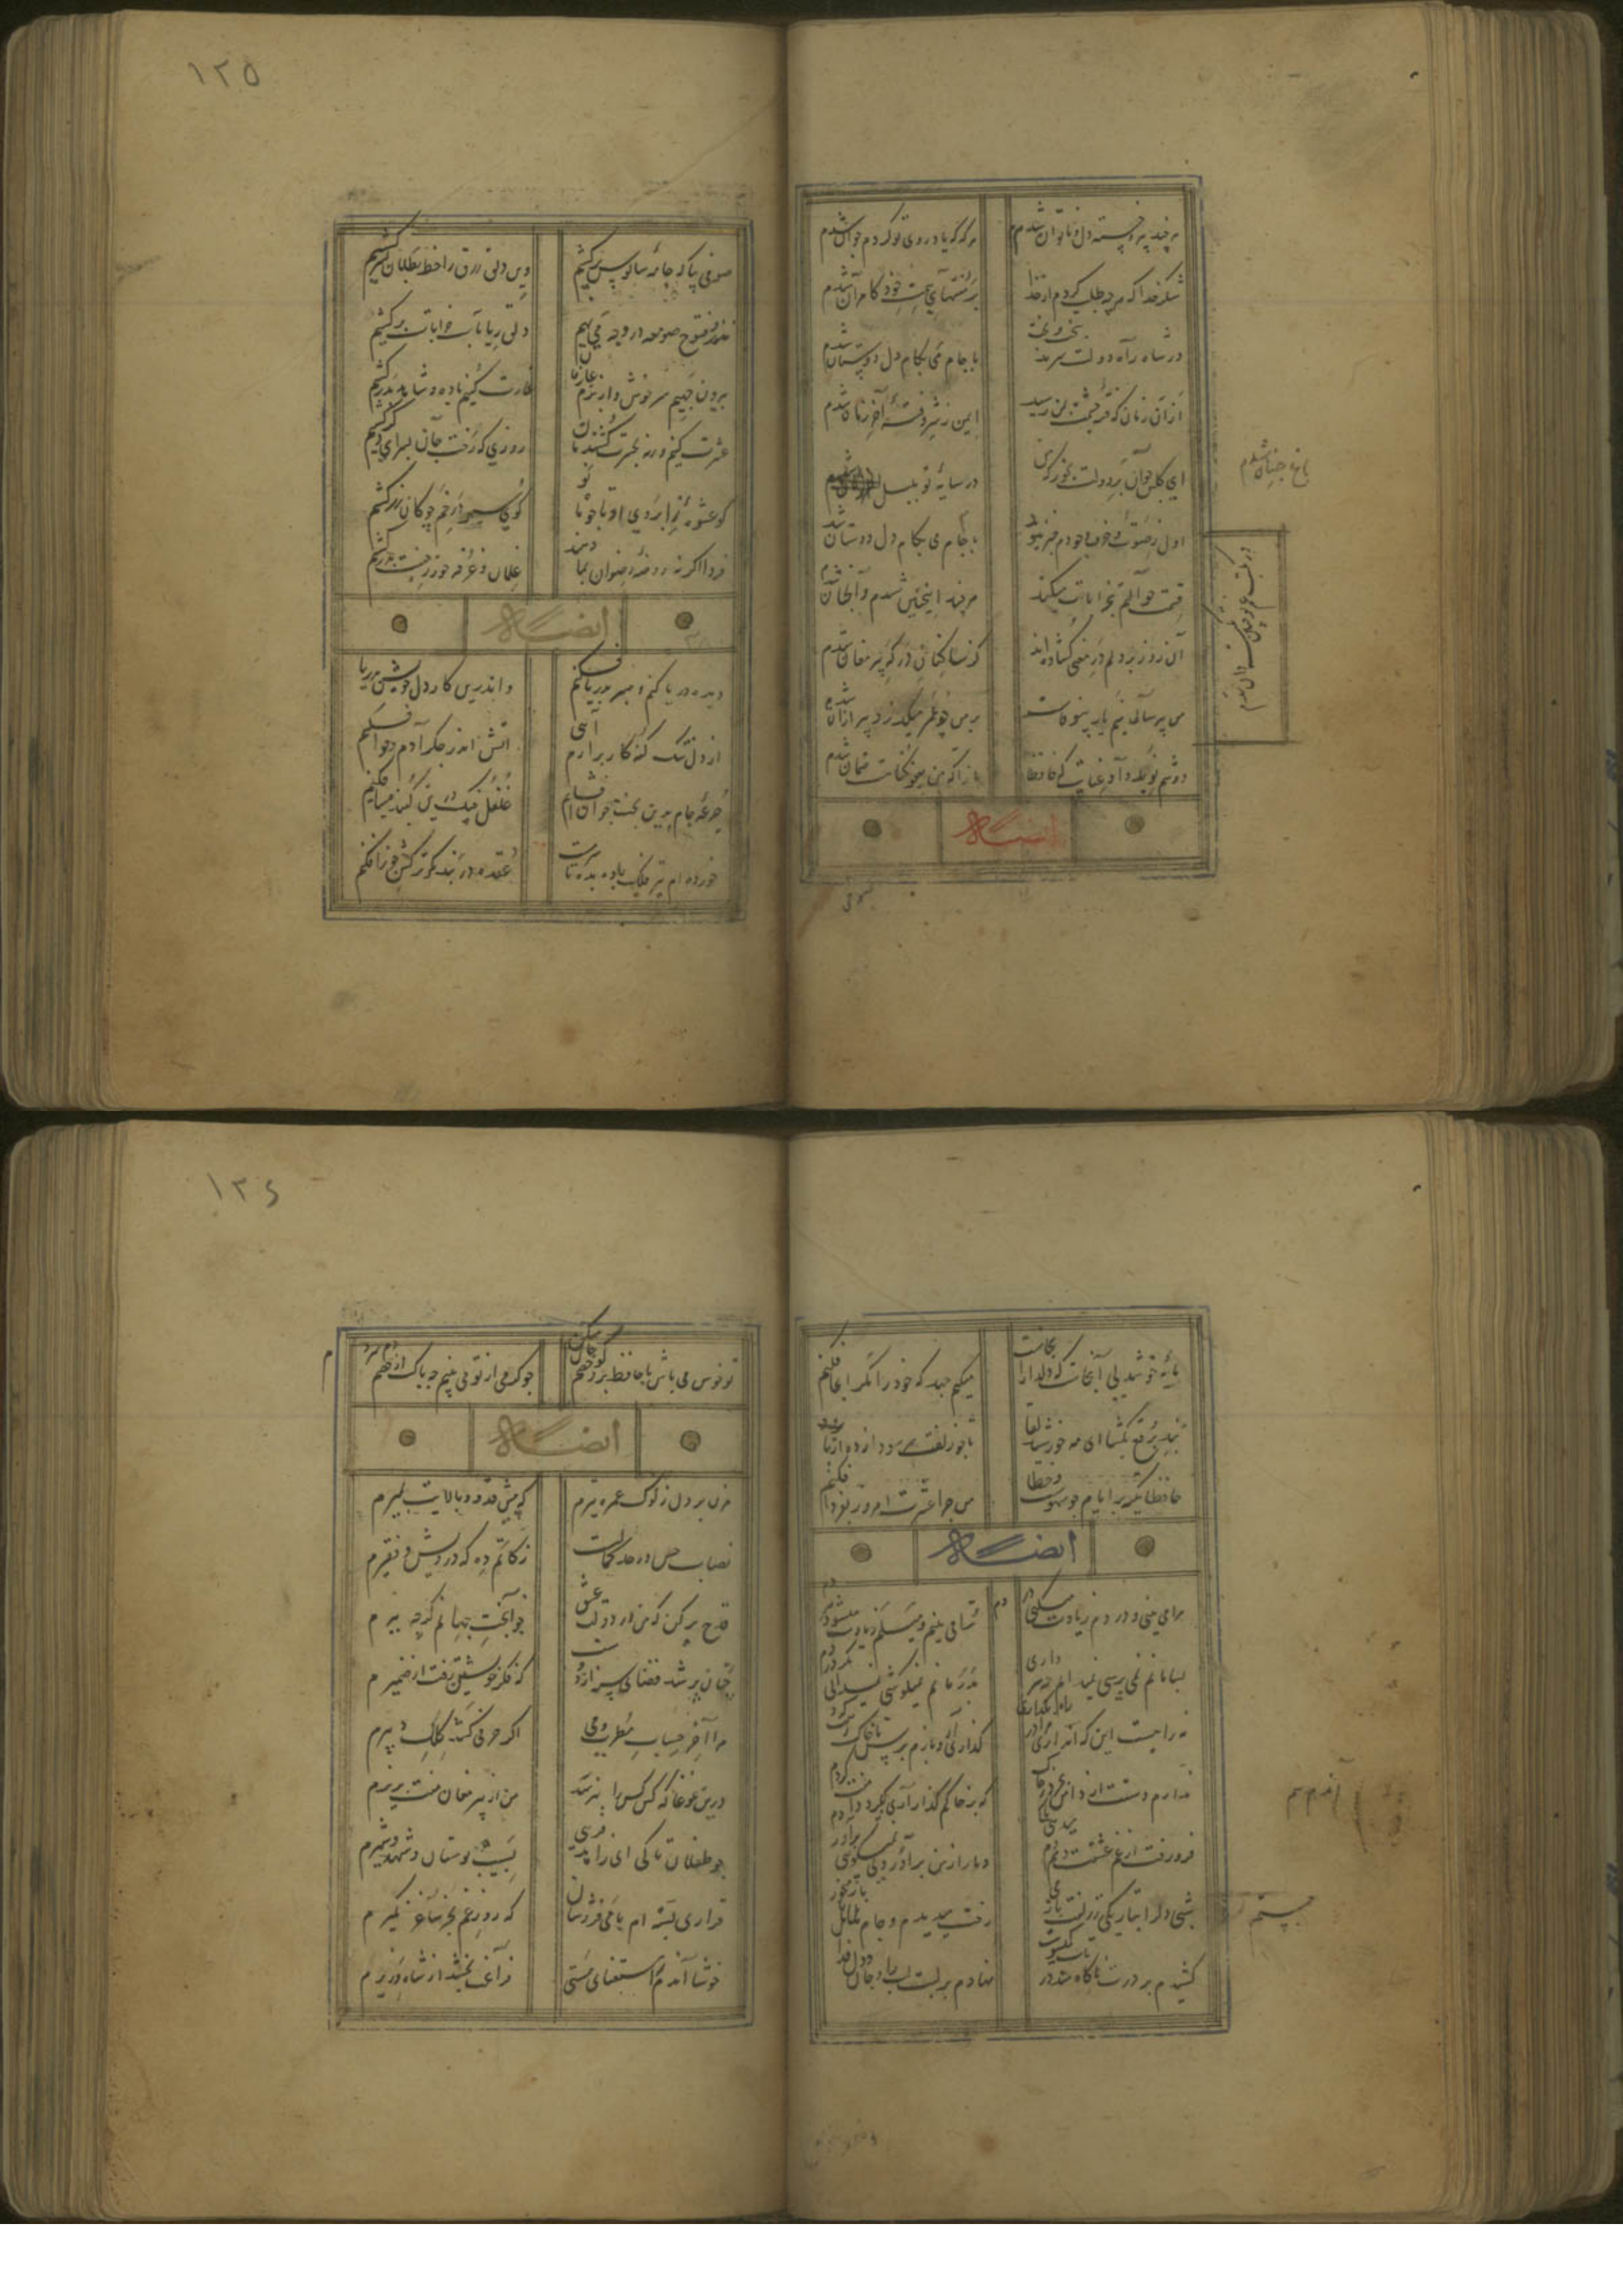 هر چند پیر و خسته دل و ناتوان شدم هر که که یاد روی تو کردم جوان شدم
شکر خدا که هر چه طلب کردم از خدا بر منتهای همت خود کامران شدم
در شاه راه دولت سرمد بتخت و بخت با جام می بکام دل دوستان شدم
از آن زمان که فتنه چشمت بمن رسید ایمن ز شر فتنه آخر زمان شدم
ای گلبن جوان بر دولت بخور که من در سایه تو بلبل
باغ جنان شدم
اول ز صوت و حرف وجودم خبر نبود
با جام می بکام دل دوستان شد
در مکتب غم تو چنین نکته دان شدم
قسمت حوالتم بخرابات میکند هر چند اینچنین شدم و آنچنان شدم
آن روز بر دلم در معنی گشاده اند کز ساکنان درگه پیر مغان شدم
من پیر سال و ماه نیم یار بیوفاست بر من چو عمر میگذرد پیر از آن شدم
دوشم نوید داد عنایت که حافظا باز آ که من بعفو گناهت ضمان شدم
ایضاً له
صوفی
۱۲۵
صوفی بیا که جامه سالوس برکشیم وین دلق زرق را خط بطلان بسر کشیم
نذر و فتوح صومعه در وجه می نهیم دلق ریا بآب خرابات بر کشیم
بیرون جهیم سرخوش و از بزم غارت کنیم باده و شاهد ببر کشیم
عشرت کنیم ورنه بحسرت کشندمان روزی که رخت جان بسرای دگر کشیم
کو عشوه ز ابروی او تا چو ماه نو گوی سپهر از خم چوگان زر کشیم
فردا اگر نه روضه رضوان بما دهند غلمان ز غرفه حور ز جنت بدر کشیم
ایضاً له
دیده دریا کنم و صبر بدریا فکنم و اندرین کار دل خویش بدریا
از دل تنگ گنه کار برآرم آهی کاتش اندر جگر آدم و حوا فکنم
جرعه جام برین تخت روان افشانم غلغل چنگ درین گنبد مینا فکنم
خورده ام تیر فلک باده بده تا سرمست عقده در بند کمر ترکش جوزا فکنم
مایه خوشدلی آنجاست که دلدار آنجاست میکنم جهد که خود را مگر آنجا فکنم
بند برقع بگشا ای مه خورشید لقا تا چو زلفت سر سودا زده در پا
حافظا تکیه بر ایام چو سهوست و خطا من چرا عشرت امروز بفردا فکنم
ایضاً له
مرا می بینی و دردم زیادت میکنی ترا می بینم و میلم زیادت میشود هر دم
بسامانم نمی پرسی نمیدانم چه سر داری بدرمانم نمیکوشی نمیدانی مگر دردم
نه راهست این که بگذاری گذاری آر و بازم پرس تا خاک رهت
ندارم دستت از دامن بجز در خاک که بر خاکم گذار آری بگیرد دامنت گردم
فرو رفت از غم عشقت دمم دم دمار از من برآوردی نمیگویی برآوردم
شبی دل را بتاریکی ز زلفت باز رخت میدیدم و جام هلالی باز میخوردم
کشیدم در برت ناگاه و شد در تاب گیسویت نهادم بر لبت لب را و جان و دل فدا
۱۲۶
تو خوش می باش با حافظ برو گو خصم جان میده چو گرمی از تو می بینم چه باک از خصم دم سردم
ایضاً له
مزن بر دل ز نوک غمزه تیرم که پیش قد و بالایت بمیرم
نصاب حسن در حد کمالست زکاتم ده که درویش و فقیرم
قدح پر کن که من از دولت عشق جوانبخت جهانم گرچه پیرم
چنان پر شد فضای سینه از دوست که فکر خویشتن رفت از ضمیرم
حساب مطرب و می اگر حرفی کشد کلک دبیرم
درین غوغا که کس کس را نپرسد من از پیر مغان منت پذیرم
چو طفلان تا کی ای زاهد فریبی بسیب بوستان و شهد و شیرم
قراری بسته ام با می فروشان که روز غم بجز ساغر نگیرم
خوشا آندم کز استغنای مستی فراغت بخشد از شاه و وزیرم